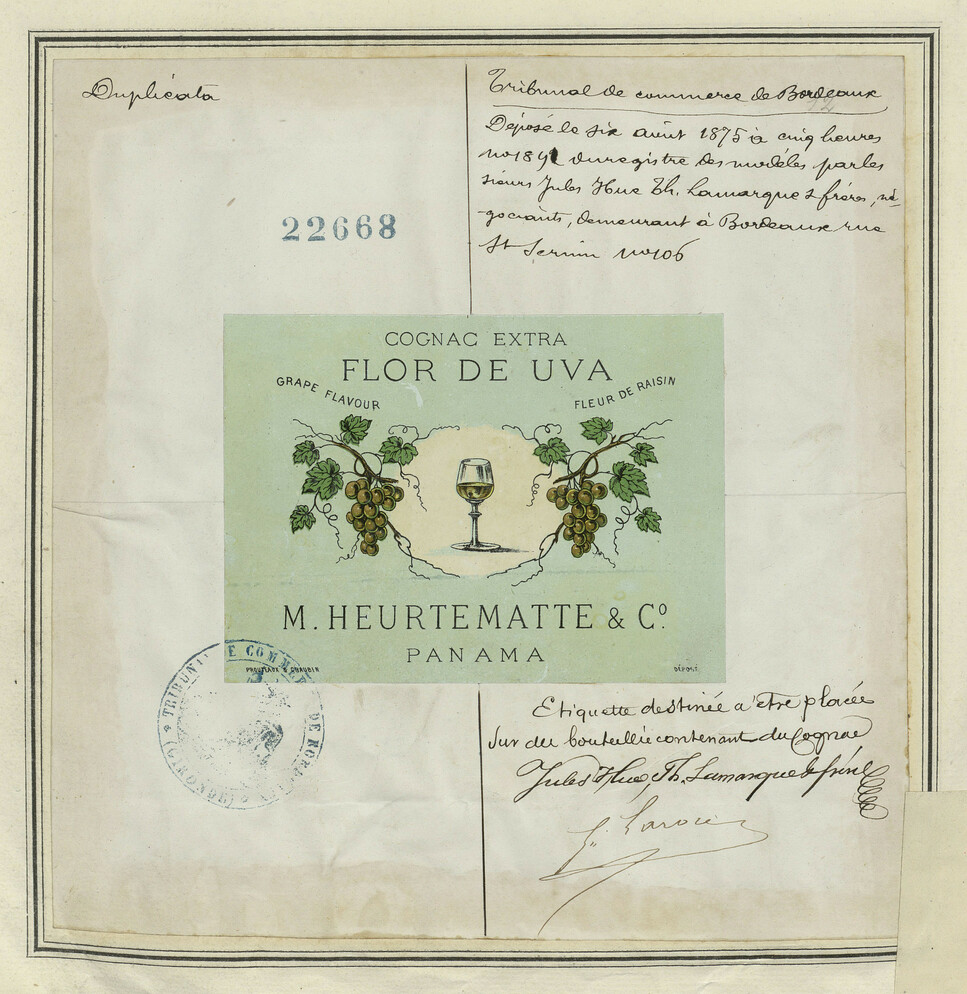 Duplicata
Tribunal de commerce de Bordeaux
12
Déposé le six août 1875 à cinq heures
no 1891 du registre des modèles par les
sieurs Jules Hue Th. Lamarque & frères, né-
gociants, demeurant à Bordeaux rue
St Sernin no 106
22668
COGNAC EXTRA
FLOR DE UVA
GRAPE FLAVOUR
FLEUR DE RAISIN
M. HEURTEMATTE & Cº
PANAMA
DÉPOSÉ
TRIBUNAL DE COMMERCE DE BORDEAUX (GIRONDE)
Etiquette destinée a être placée
Sur du bouteille contenant du Cognac
Jules Hue, Th. Lamarque & frères